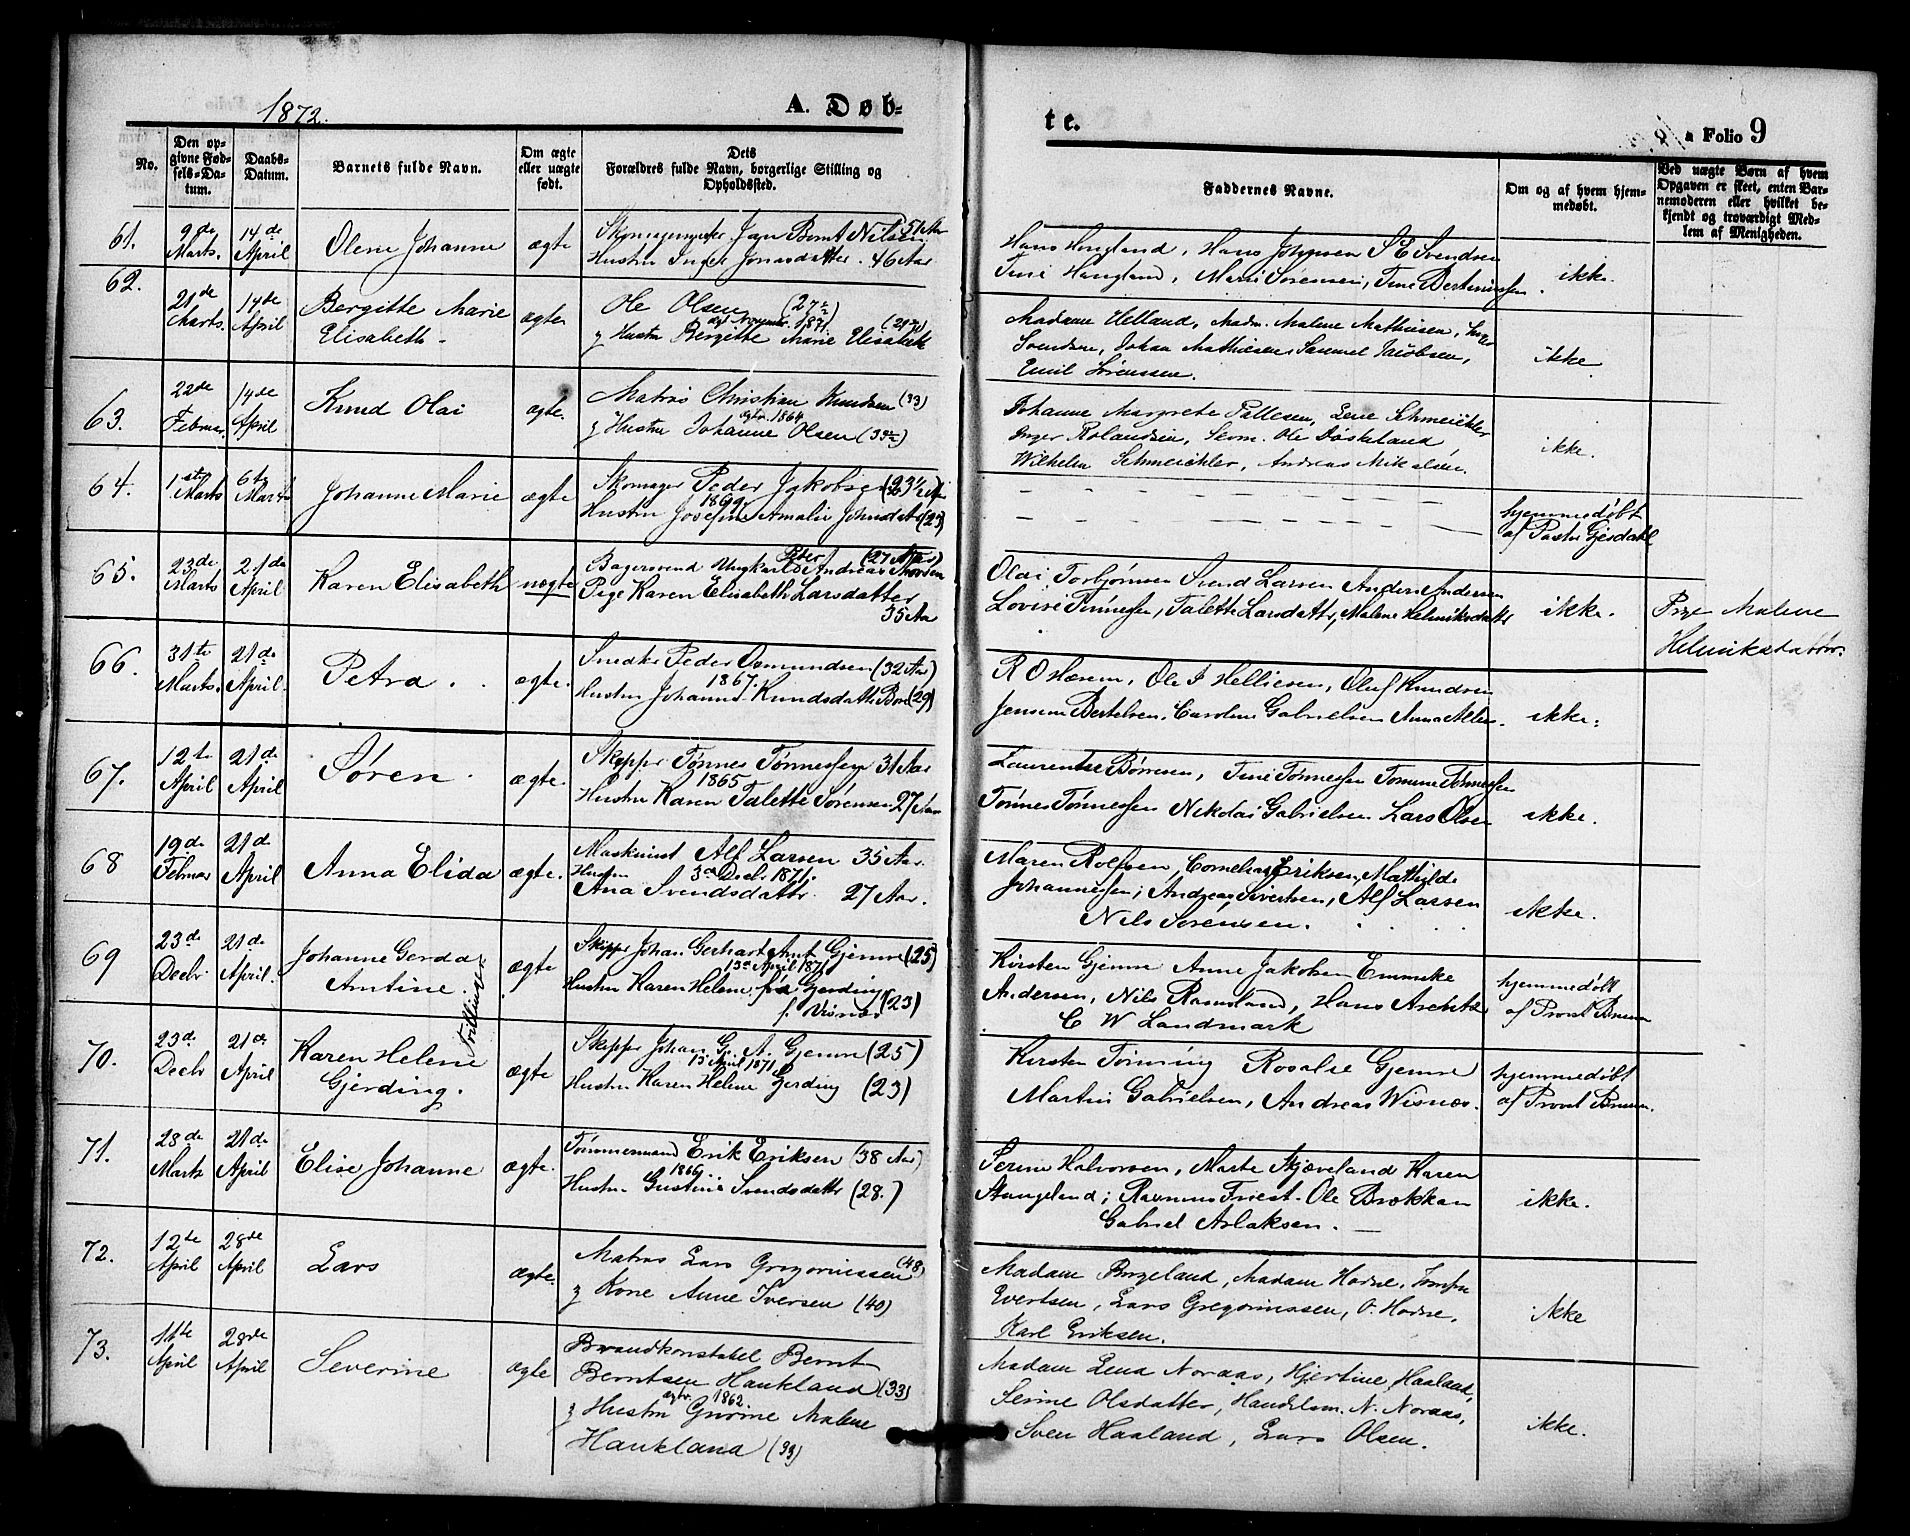 1872.
A. Døb-
te.
a Folio 9
No.
Den op-
givne Fød-
sels-Da-
tum.
Daabs-
Datum.
Barnets fulde Navn.
Om ægte
eller uægte
født.
Dets
Forældres fulde Navn, borgerlige Stilling og
Opholdssted.
Faddernes Navne.
Om og af hvem hjem-
medøbt.
Ved uægte Børn af hvem
Opgaven er skeet, enten Bar-
nemoderen eller hvilket be-
kjendt og troværdigt Med-
lem af Menigheden.
61.
9de
Marts.
14de
April
Olene Johanne
ægte
Bernt Nilsen 51 Aar
Hustru Inger Jonasdatter. 46 Aar
Hans Haugland, Hans S E Svendsen
Tine Haugland, Marie Sørensen, Tine Bertinussen
ikke.
62.
21de
Marts.
14de
April
Bergitte Marie
Elisabeth.
ægte
Ole Olsen (27)
Novembr. 1871.
Hustru Bergitte Marie Elisabeth
Madam Helland, Madm. Malene Mathiesen,
Svendsen, Johan Mathiesen, Samuel Jacobsen,
Emil Sørenssen.
ikke
63.
22de
Februar.
14de
April
Knud Olai
ægte.
Matros Christian Knudsen (33)
1864
Hustru Johanne Olsen
Johanne Margrete Pallesen, Lene Schmeichler
Inger Rolandsen, Ole Døskeland
Wilhelm Schmeichler, Andreas Mikalsen.
ikke.
64.
1ste
Marts
6te
Marts
Johanne Marie
ægte
Skomager Peder Jakobsen (23½ Aar
1869.
Hustru Josefine Amalie Johnsdatr (23)
hjemmedøbt
af Pastor Gjesdahl
65.
23de
Marts
21de
April
Karen Elisabeth
uægte
Peder (27 Aar)
Bagersvend Ungkarl Andreas
Pige Karen Elisabeth Larsdatter
35 Aar
Olai Torbjørnsen Svend Larsen Anders Andersen
Lovise Tønnesen, Talette Larsdattr, Malene Helmiksdattr
ikke.
Pige Malene
Helmiksdattr.
66.
31te
Marts.
21de
April.
Petra.
ægte.
Snedker Peder Osmundsen (32 Aar)
1867.
Hustru Johanne Knudsdattr Bore (29)
R O Ole I Helliesen, Oluf Knudsen
Jensine Bertelsen. Caroline Gabrielsen Anna
ikke.
67.
12te
April
21de
April
Søren.
ægte.
Skipper Tønnes Tønnessen 31 Aar
1865
Hustru Karen Talette Sørensen 27 Aar
Laurentze Børesen, Tine Tønnessen Tomine Tønnessen
Tønnes Tønnessen Nikolai Gabrielsen Lars Olsen
ikke.
68
19de
Februar
21de
April
Anna Elida
ægte.
Maskinist Alf Larsen 35 Aar.
Hustru 3de Decbr. 1871.
Ana Svendsdattr. 27 Aar.
Maren Rolfsen, Cornelius Eriksen, Mathilde
Johannessen; Andreas Sivertsen, Alf Larsen
Nils Sørensen.
ikke.
69
23de
Decbr.
21de
April.
Johanne Gerda
Amtine.
Tvillinger
ægte
Skipper Johan Gerhart Amt Gjemre (25)
13de April 1871
Hustru Karen Helene fra Gjerding
f. Visnæs (23)
Kirsten Gjemre Anne Jakobsen Emmike
Andersen, Nils Hans
C W Landmark
hjemmedøbt
af Provst Bruun
70.
23de
Decbr
21de
April
Karen Helene
Gjerding.
ægte
Skipper Johan G. A. Gjemre (25)
13 April 1871
Hustru Karen Helene Gjerding (23)
Kirsten Tønning Rosalie Gjemre
Martin Gabrielsen, Andreas Wisnæs.
hjemmedøbt
af Provst Bruun.
71.
28de
Marts
21de
April
Elise Johanne
ægte.
Tømmermand Erik Eriksen (38 Aar)
1866.
Hustru Gustine Svendsdattr (28.)
Serine Halvorsen, Marte Skjæveland Karen
Stangeland; Rasmus Friest. Ole Brækkan
Gabriel Aslaksen.
ikke.
72.
12te
April
28de
April
Lars
ægte
Matros Lars Gregoriussen (48)
Kone Anne Iversen (40)
Madam Birgeland, Madam Hodne,
Evertsen, Lars Gregoriussen, O. Hodne,
Karl Eriksen.
ikke
73.
11te
April
28de
April
Severine
ægte
Brandkonstabel Bernt
Berntsen Haukland (33)
1862
Hustru Gurine Malene
Haukland (33)
Madam Lena Noraas, Hjertine Haaland,
Serine Olsdatter, Handelsm. N. Noraas,
Sven Haaland, Lars Olsen.
ikke.